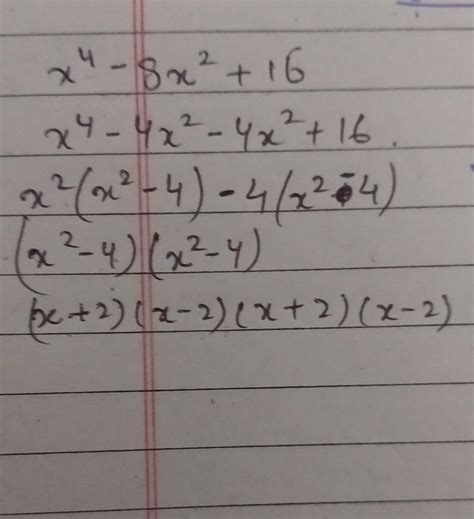 x⁴ - 8x² + 16
x⁴ - 4x² - 4x² + 16.
x²(x² - 4) - 4(x² - 4)
(x² - 4)(x² - 4)
(x + 2)(x - 2)(x + 2)(x - 2)